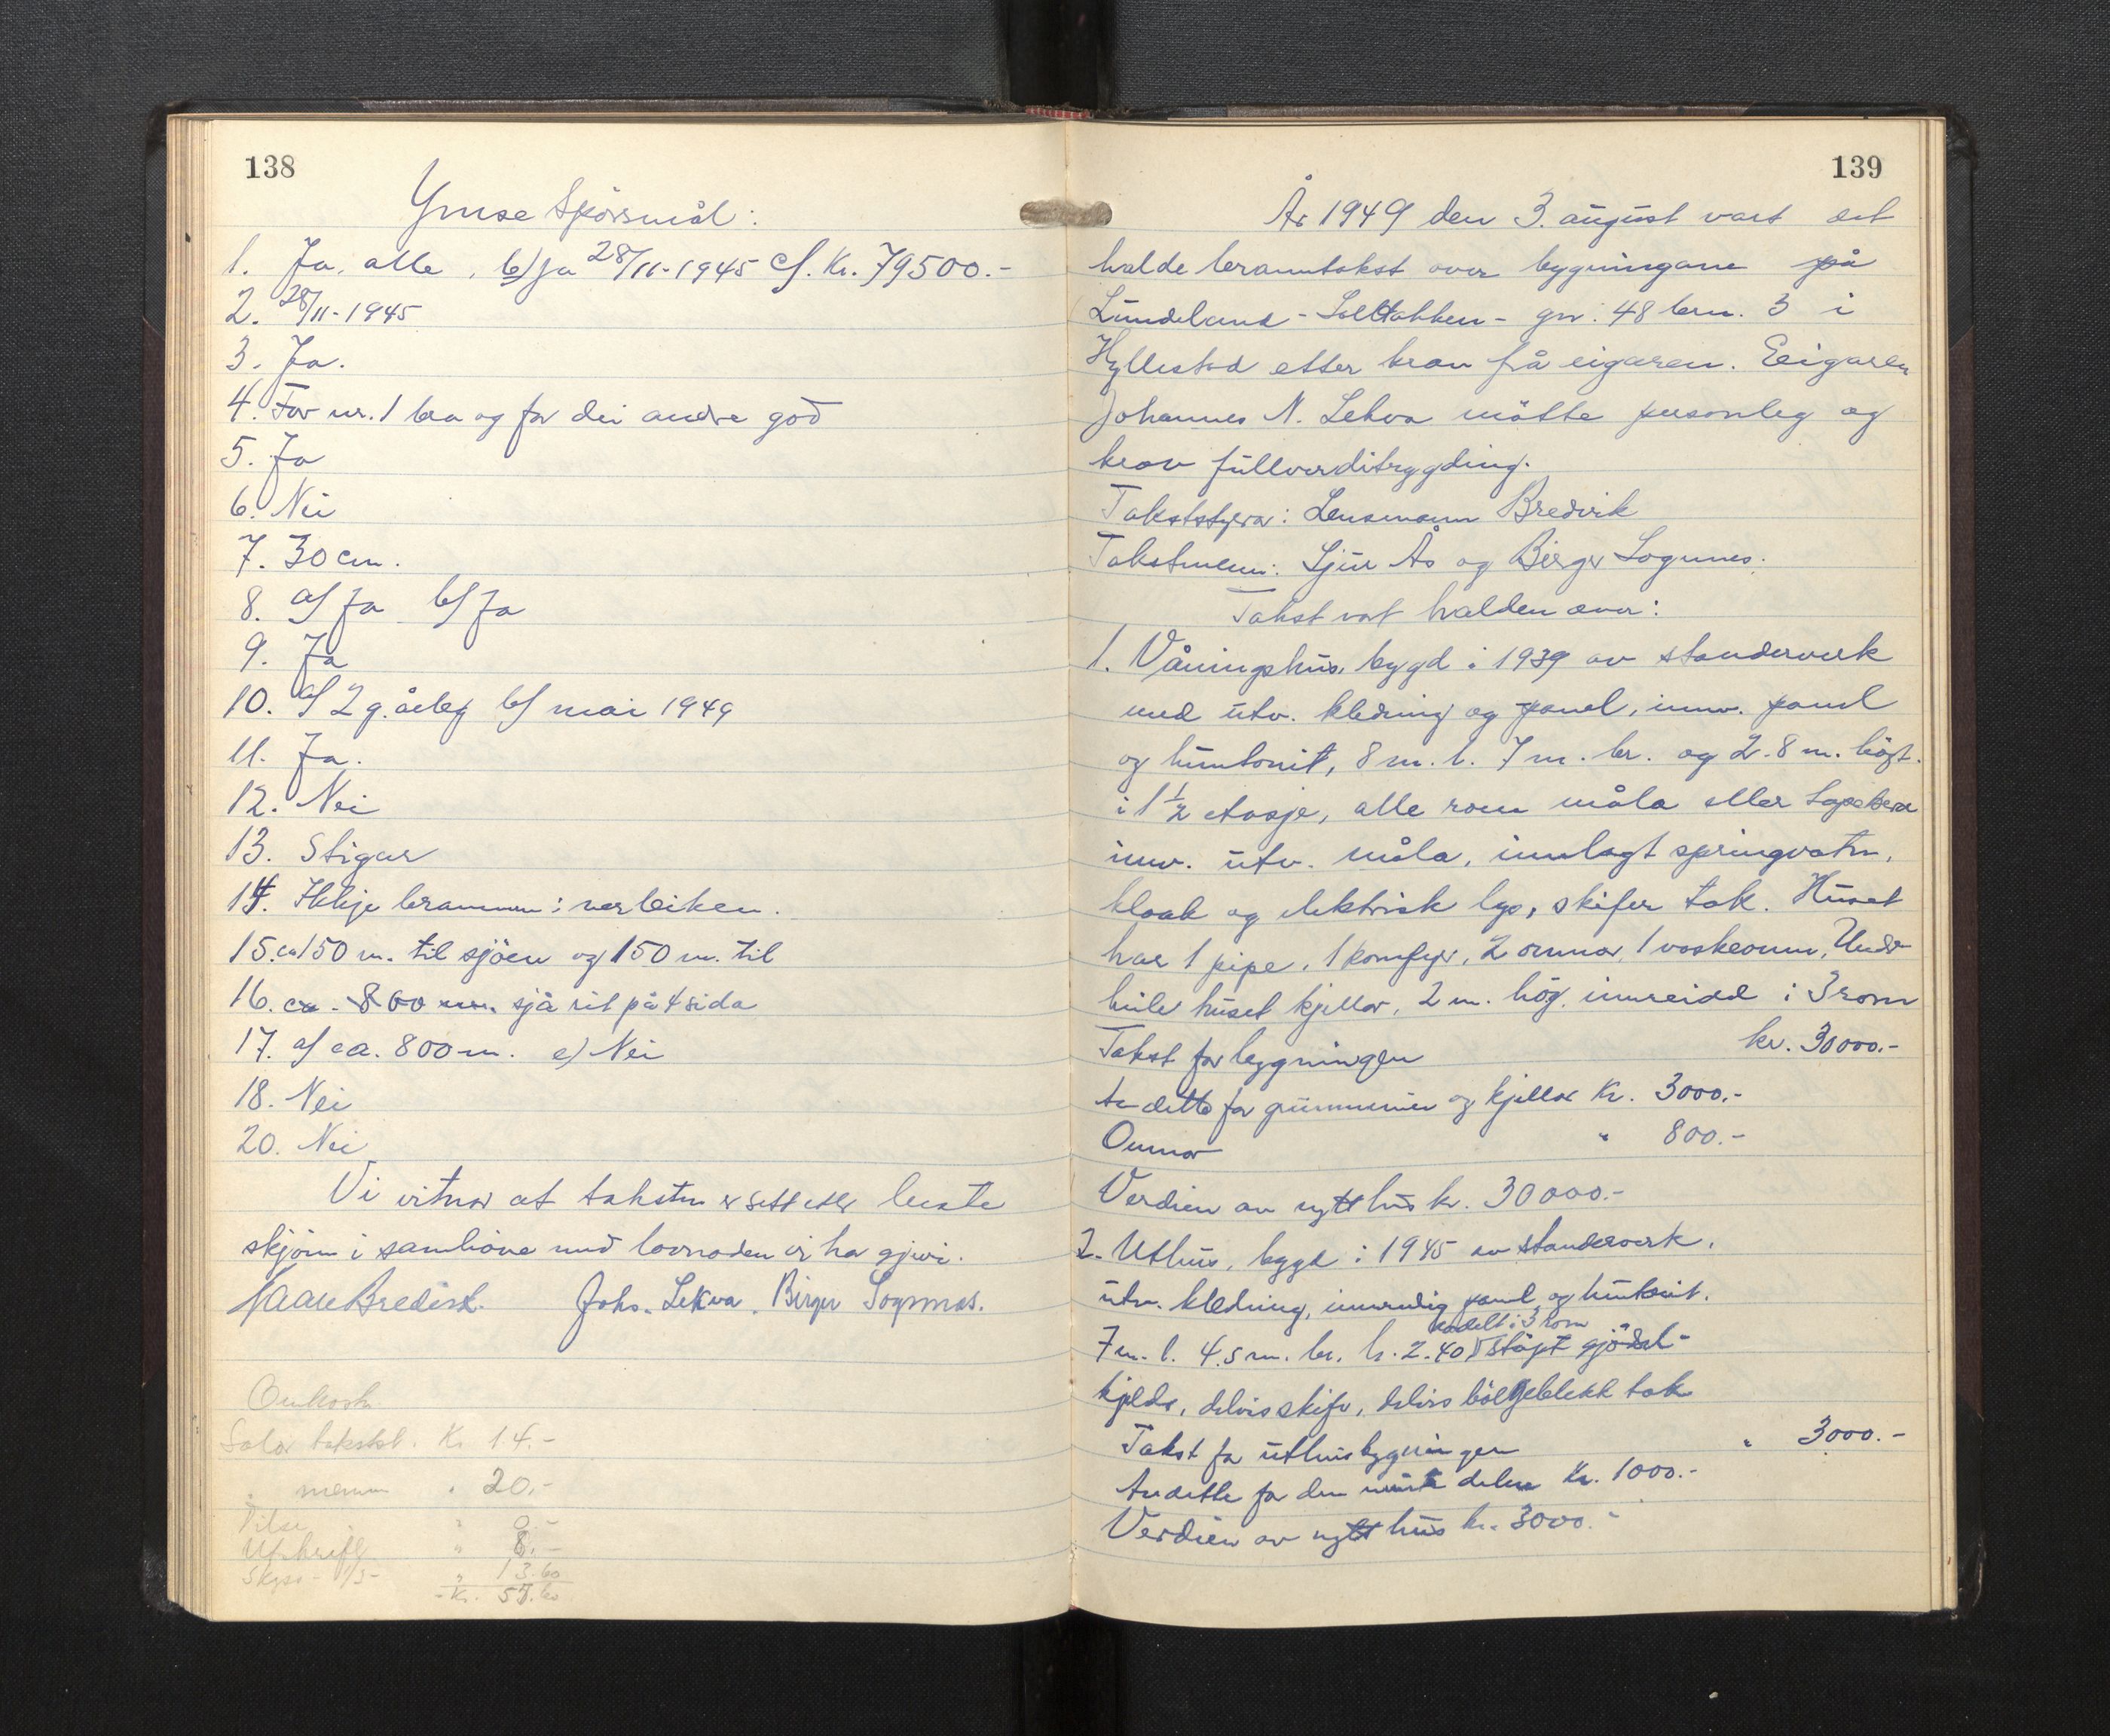 138
Ymse Spörsmål:
1. Ja, alle, b/ ja 28/11-1945 c/. Kr. 79500.-
2. 28/11-1945
3. Ja.
4. For nr. 1 bra og for dei andre god
5. Ja
6. Nei
7. 30 cm.
8. a/ Ja b/ Ja
9. Ja
10. a/ 2 g. årleg b/ mai 1949
11. Ja.
12. Nei
13. Stigar
14. Ikkje brannen i nærleiken.
15. ca 150 m. til sjöen og 150 m. til
16. ca. 800 m. sjå rit på 4 sida
17. a/ ca. 800 m. c/ Nei
18. Nei
20. Nei
Vi vitnar at taksten er sett etter beste
skjön i samhöve med lovnaden vi har gjevi.
Bredvik. Johs. Lekva. Birger Sognnes.
Omkostn.
Salar takstst. Kr. 14.-
" menn " 20.-
" 0.-
Utskrift " 8.-
Skyss " 13.60
Kr. 57.60
139
År 1949 den 3. august vart det
halde branntakst over bygningane på
Lundeland - Solbakken - gnr. 48 brn. 3 i
Hyllestad etter krav frå eigaren. Eeigaren
Johannes N. Lekva mötte personleg og
krav fullverditrygding.
Takststyrar: Lensmann Bredvik
Takstmenn: Sjur Ås og Birger Sognnes.
Takst vart halden over:
1. Våningshus, bygd i 1939 av standerverk
med utv. kledning og panel, innv. panel
og huntonit, 8 m. l. 7 m. br. og 2.8 m. högt.
i 1 1/2 etasje, alle rom måla eller tapetsera
innv. utv. måla, innlagt springvatn,
kloak og elektrisk lys, skifer tak. Huset
har 1 pipe, 1 komfyr, 2 omnar, 1 vaskeomn, Under
heile huset kjellar, 2 m. hög, innreidd i 3 rom
Takst for bygningen kr. 30000.-
Av dette for grunnmur og kjellar Kr. 3000.-
Omnar " 800.-
Verdien av nytt hus kr. 30000.-
2. Uthus, bygd i 1945 av standerverk,
utv. kledning, innvendig panel og huntonit.
avdelt i 3 rom
7 m. l. 4.5 m. br. h. 2.40 stöypt gjödsel-
kjeldar, delvis skifer, delvis bölgjeblekk tak
Takst for uthusbygningen " 3000.-
Av dette for den murte delen Kr. 1000.-
Verdien av nytt hus kr. 3000.-